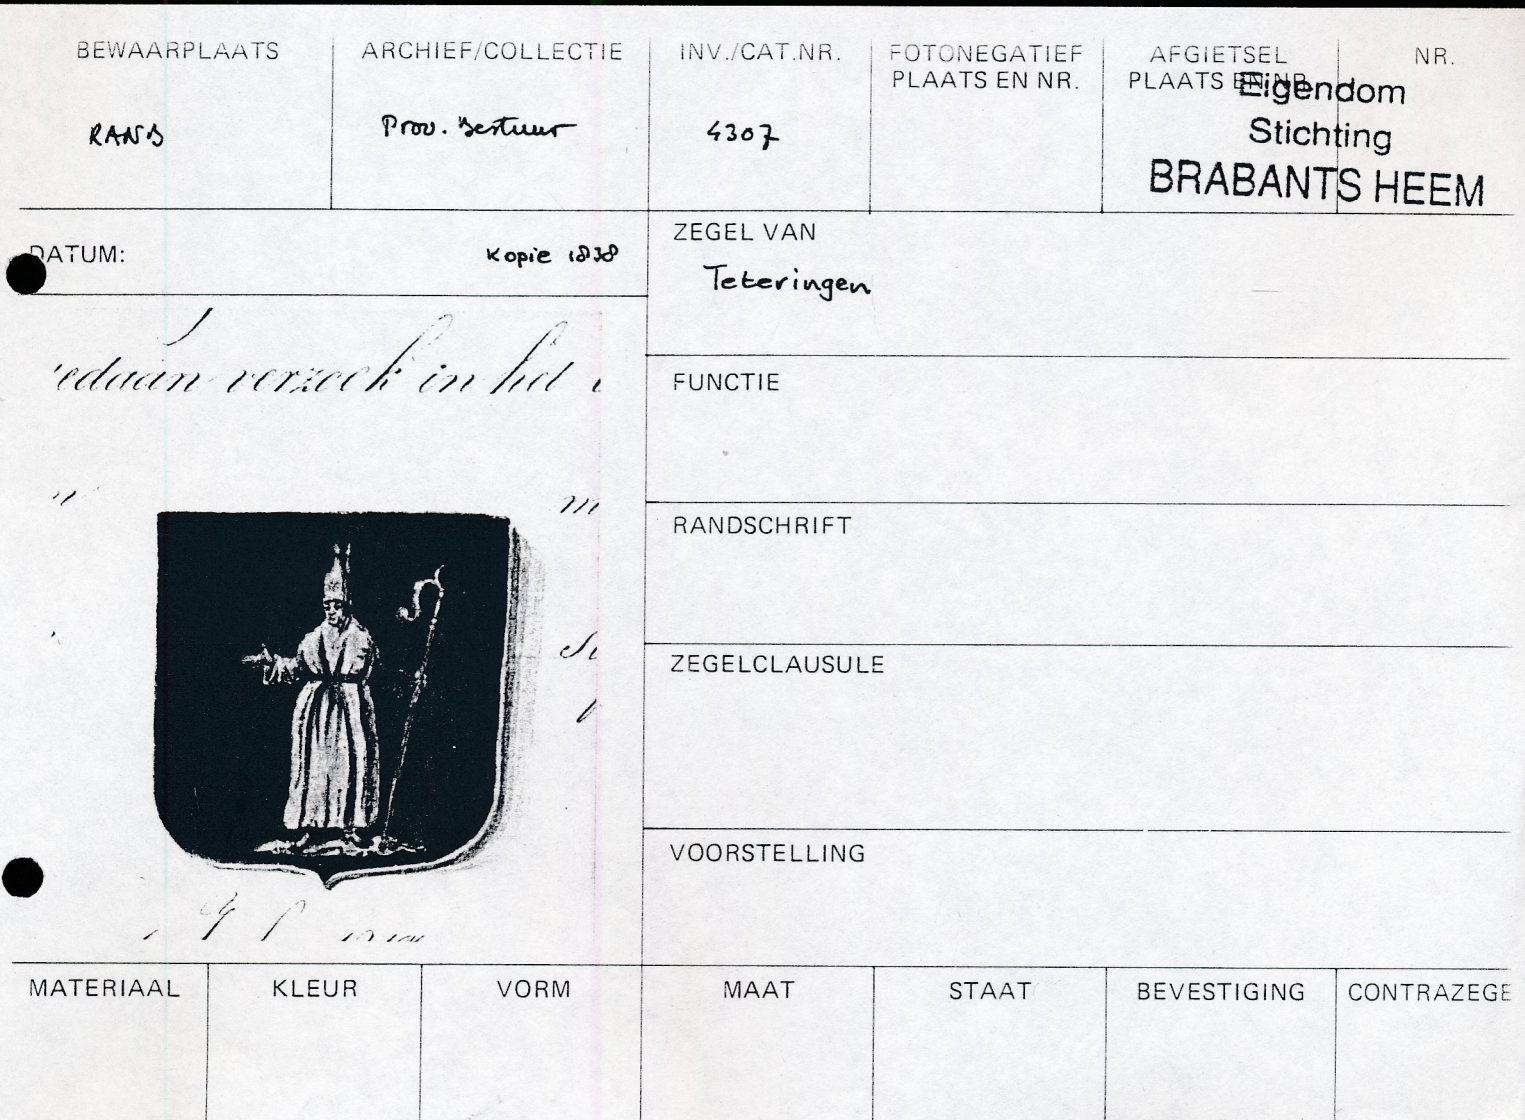 BEWAARPLAATS
RANB
ARCHIEF/COLLECTIE
Prov. Bestuur
INV./CAT.NR.
4307
FOTONEGATIEF
PLAATS EN NR.
AFGIETSEL
PLAATS EN NR.
NR.
Eigendom
Stichting
BRABANTS HEEM
DATUM:
Kopie 1838
ZEGEL VAN
Teteringen
edaan verzoek in het
FUNCTIE
RANDSCHRIFT
ZEGELCLAUSULE
VOORSTELLING
MATERIAAL
KLEUR
VORM
MAAT
STAAT
BEVESTIGING
CONTRAZEGE